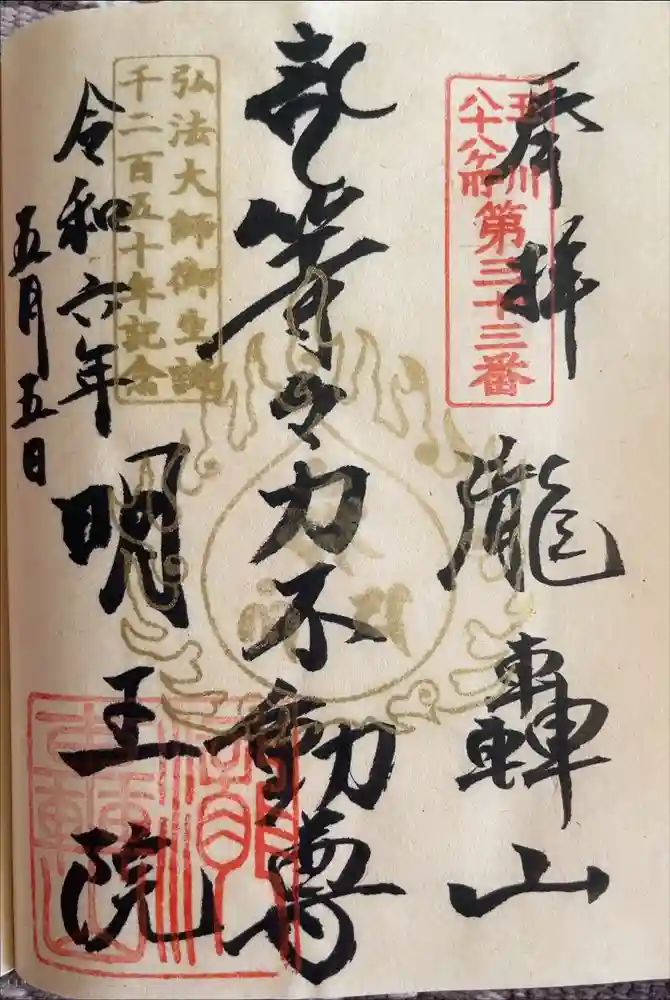 奉拝
玉川
八十八ケ所
第三十三番
瀧轟山
等々力不動尊
弘法大師御生誕
千二百五十年記念
令和六年
五月五日
明王院